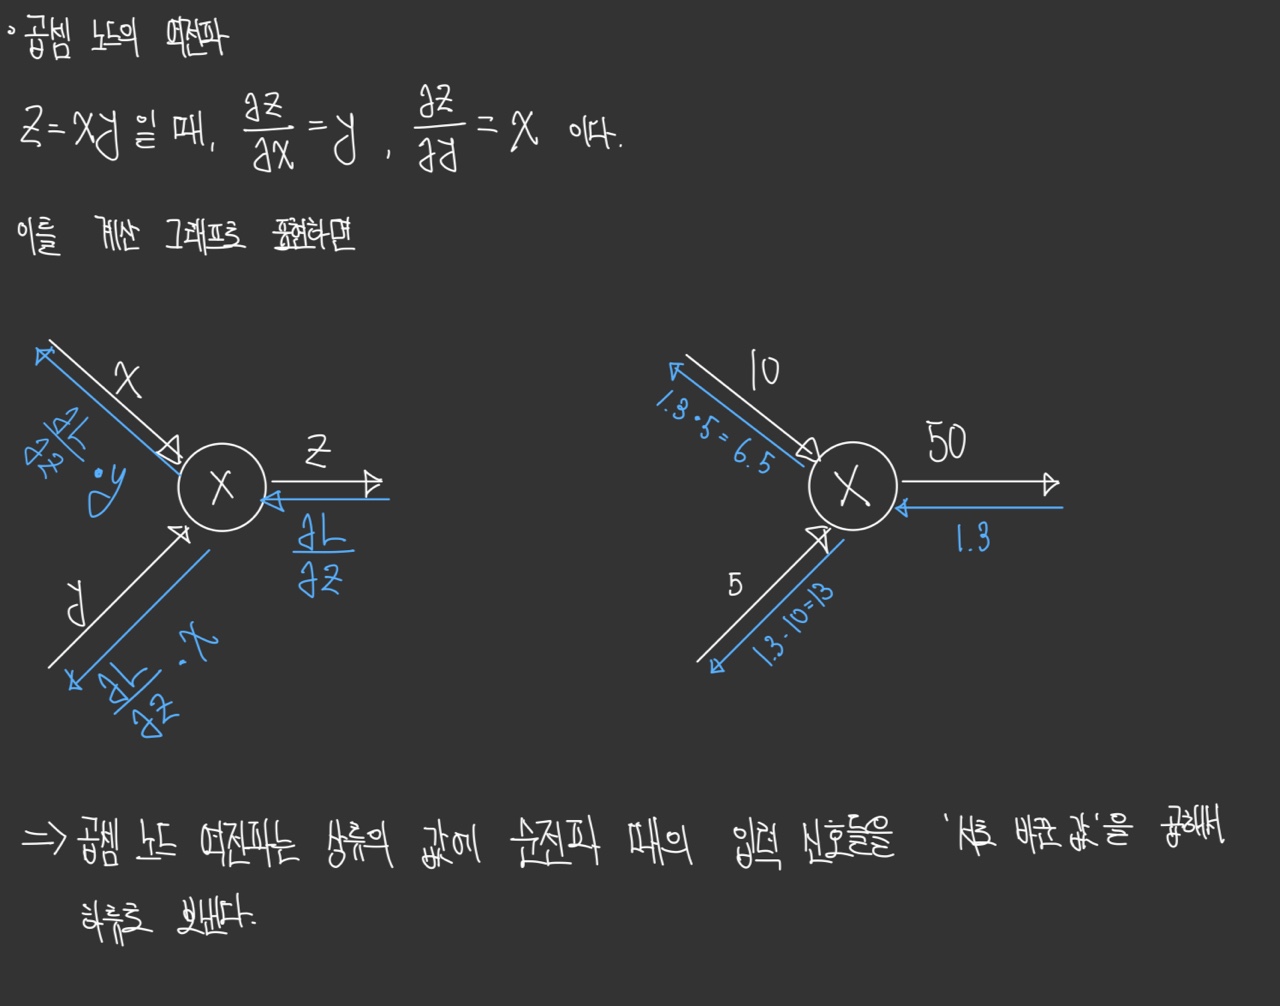 • 곱셈 노드의 역전파
z = xy 일 때, ∂z/∂x = y , ∂z/∂y = x 이다.
이를 계산 그래프로 표현하면
x
∂L/∂z · y
z
∂L/∂z
y
∂L/∂z · x
x
10
1.3 · 5 = 6.5
50
1.3
5
1.3 · 10 = 13
x
=> 곱셈 노드 역전파는 상류의 값에 순전파 때의 입력 신호들을 '서로 바꾼 값'을 곱해서
하류로 보낸다.